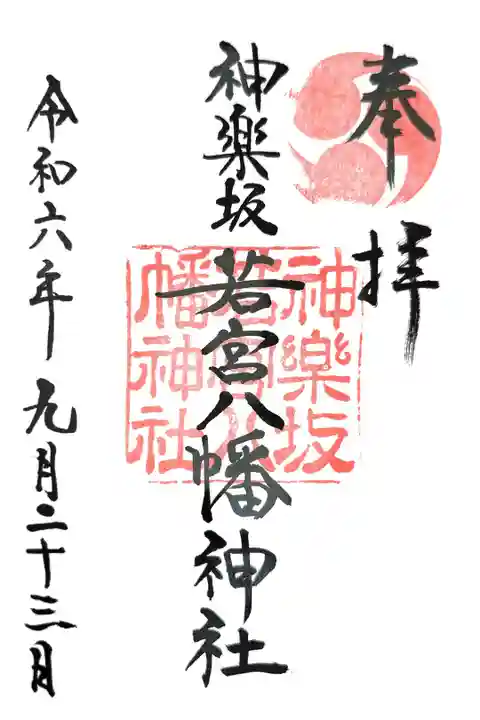 奉拝
神楽坂
若宮八幡神社
神樂坂
若宮八
幡神社
令和六年九月二十三日